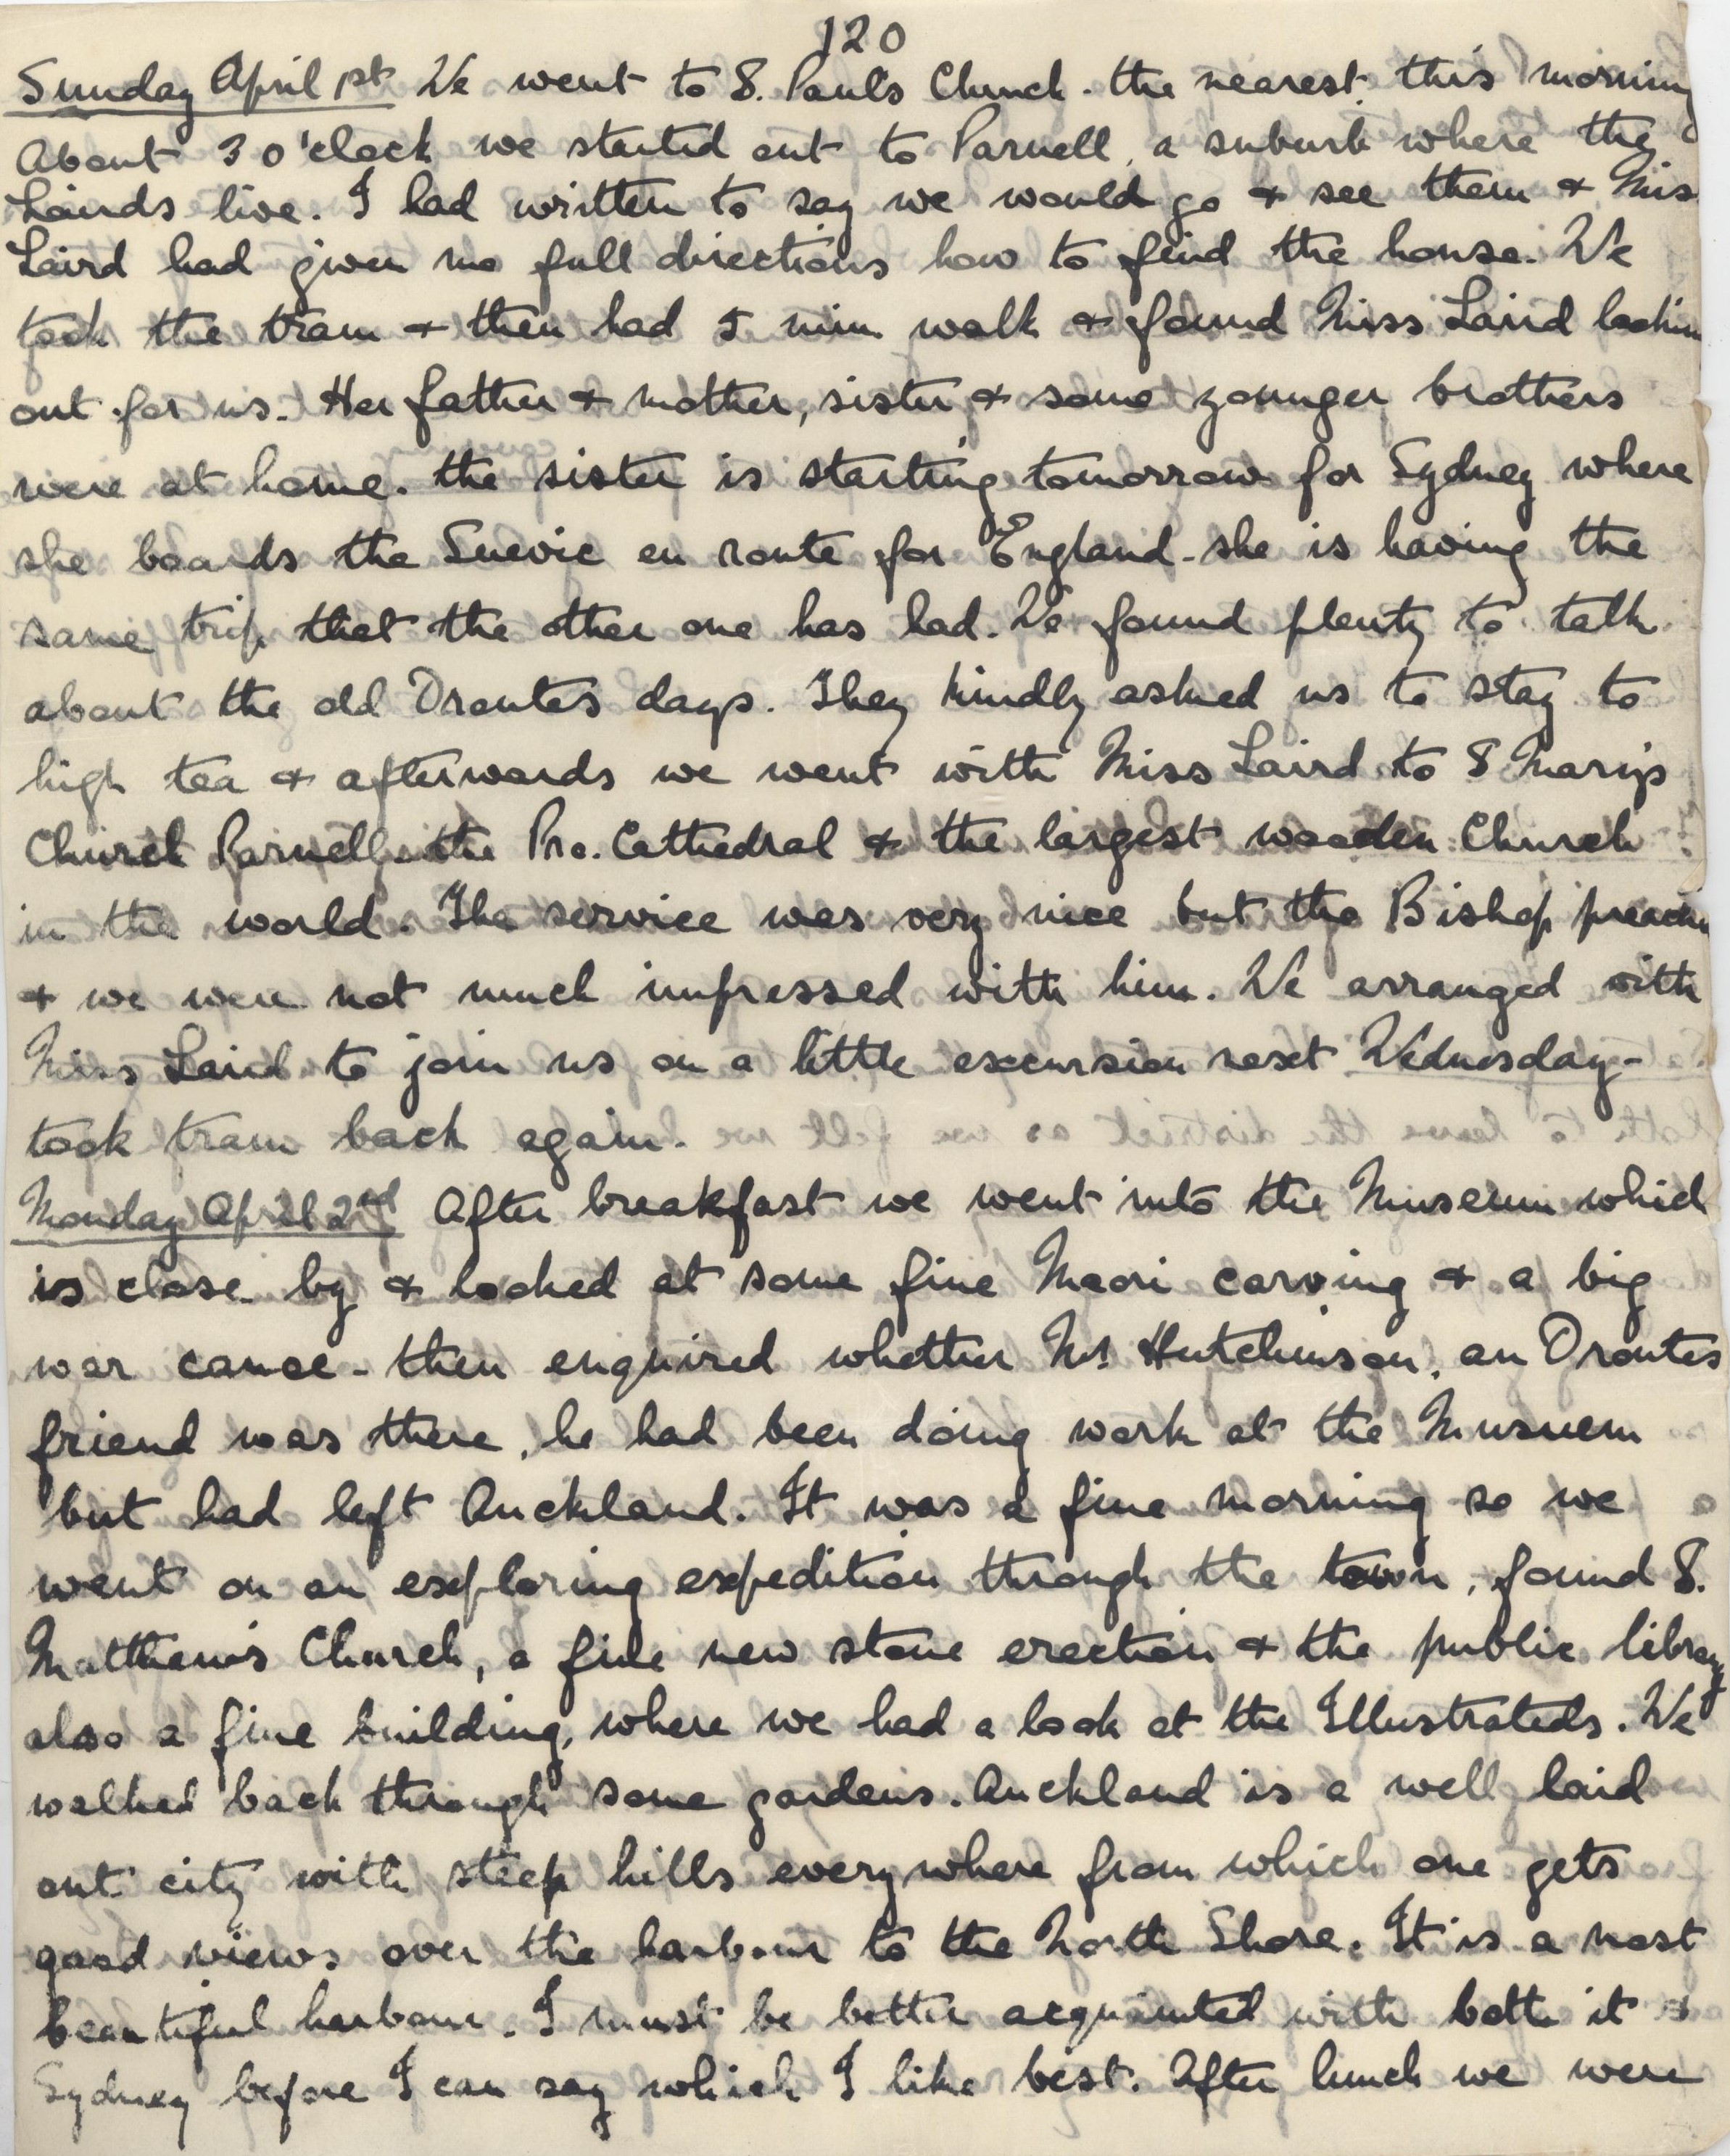 120
Sunday April 1st We went to S. Paul's Church. the nearest, this morning
About 3 o'clock we started out to Parnell, a suburb where the
Lairds live. I had written to say we would go & see them & Miss
Laird had given me full directions how to find the house. We
took the tram & then had 5 min. walk & found Miss Laird looking
out for us. Her father & mother, sister & some younger brothers
were at home. the sister is starting tomorrow for Sydney where
she boards the Suevic en route for England - she is having the
same trip that the other one has had. We found plenty to talk
about the old Orontes days. They kindly asked us to stay to
high tea & afterwards we went with Miss Laird to S Mary's
Church Parnell - the Pro. Cathedral & the largest wooden Church
in the world. The service was very nice but the Bishop preached
& we were not much impressed with him. We arranged with
Miss Laird to join us on a little excursion next Wednesday -
took tram back again.
Monday April 2nd After breakfast we went into the Museum which
is close by & looked at some fine Maori carving & a big
war canoe - then enquired whether Mr Hutchinson, an Orontes
friend was there, he had been doing work at the Musuem
but had left Auckland. It was a fine morning so we
went on an exploring expedition through the town, found S.
Matthew's Church, a fine new stone erection & the public library
also a fine building, where we had a look at the Illustrateds. We
walked back through some gardens. Auckland is a well laid
out city with steep hills everywhere from which one gets
good views over the harbour to the North Shore. It is a most
beautiful harbour. I must be better acquainted with both it &
Sydney before I can say which I like best. After lunch we were